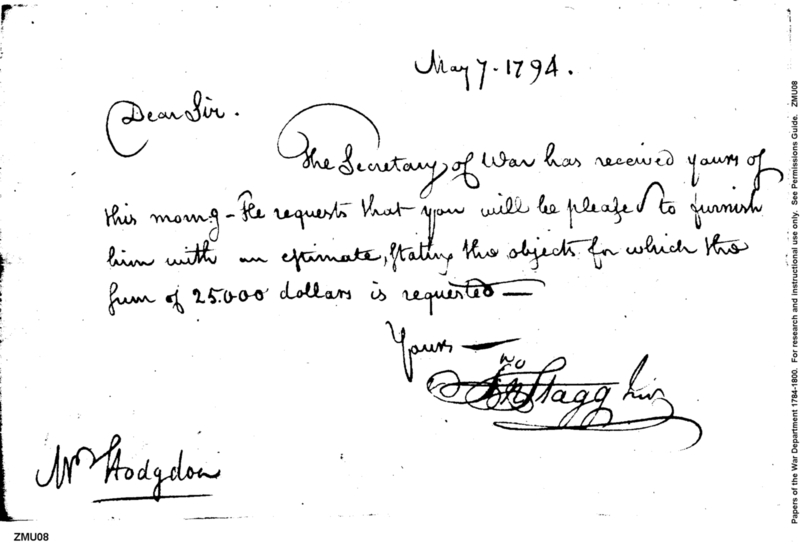 May 7. 1794.
Dear Sir.
The Secretary of War has received yours of
this morng – He requests that you will be pleased to furnish
him with an estimate, stating the objects for which the
sum of 25.000 dollars is requested —
Yours —
Jno Stagg Junr
Mr Hodgdon
ZMU08
Papers of the War Department 1784-1800. For research and instructional use only. See Permissions Guide. ZMU08